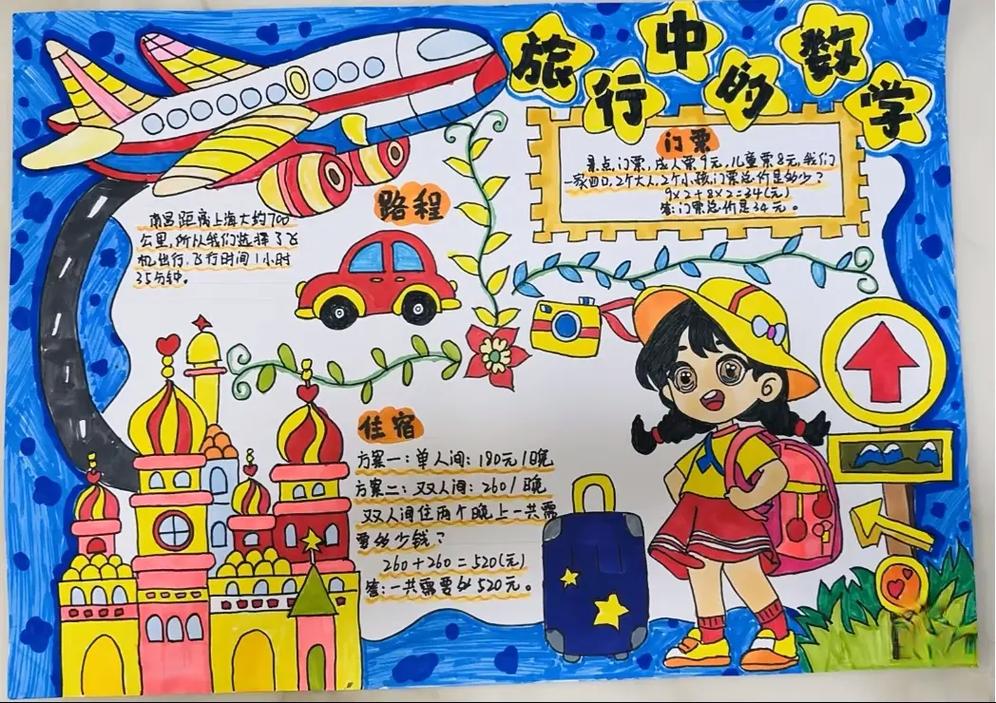 旅行中的数学
门票
景点门票,成人票9元,儿童票8元,我们
一家四口,2个大人,2个小孩,门票总价是多少?
9×2+8×2=34(元)
答:门票总价是34元。
路程
南昌距离上海大约700
公里,所以我们选择了飞
机出行,飞行时间1小时
35分钟。
住宿
方案一:单人间:180元/晚
方案二:双人间:260/晚
双人间住两个晚上一共需
要多少钱?
260+260=520(元)
答:一共需要 520元。